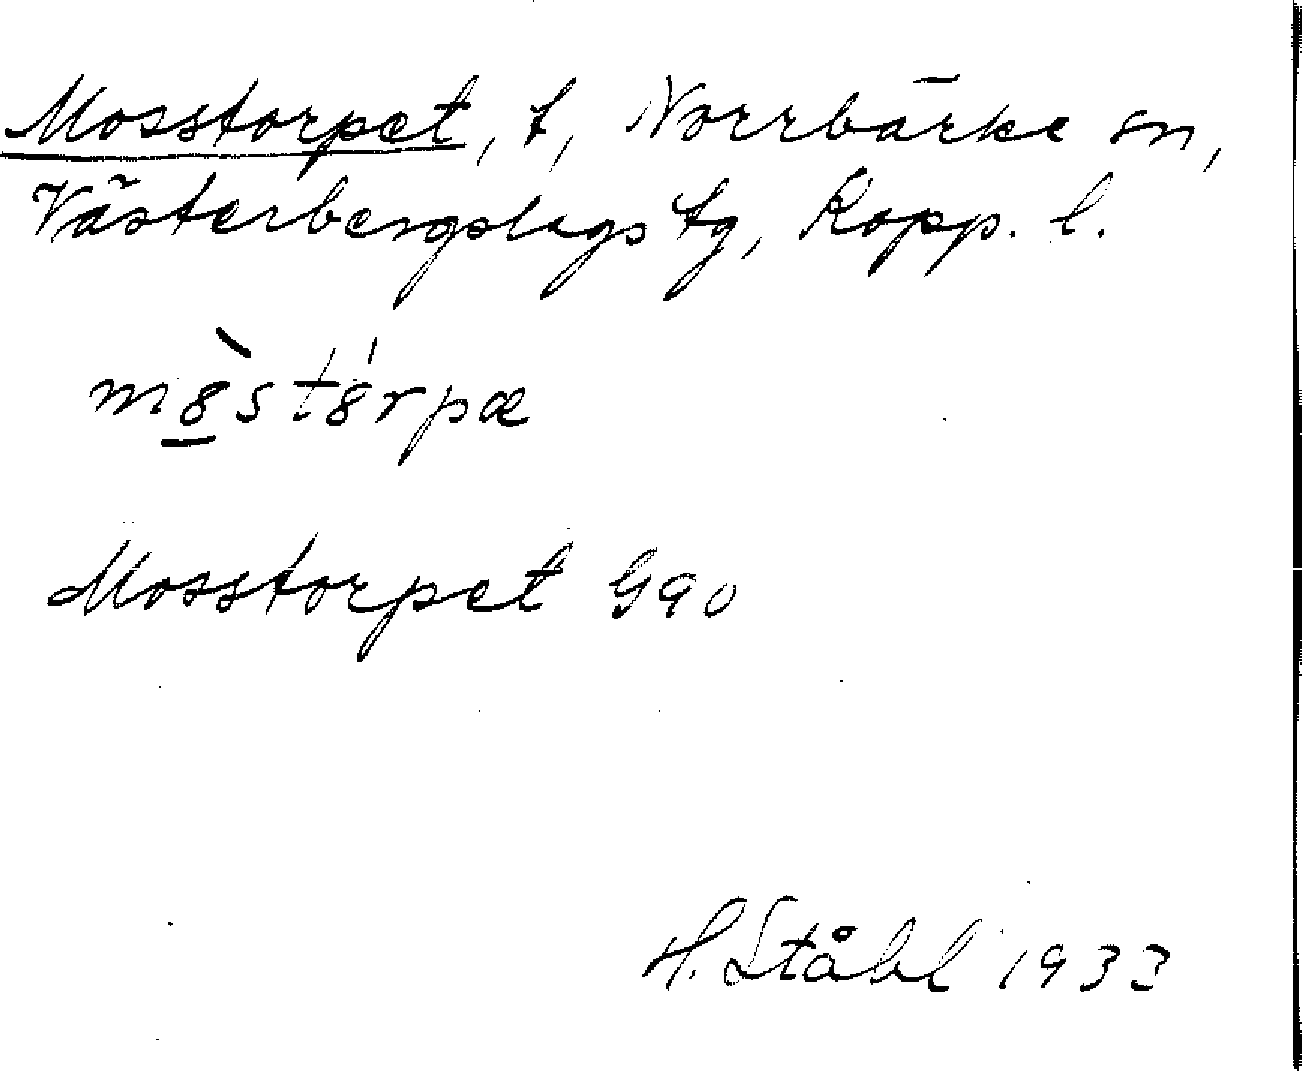 Mosstorpet, t, Norrbärke sn,
Västerbergslags tg, Kopp. l.
mọ̀stórpæ
Mosstorpet G90
H. Ståhl 1933